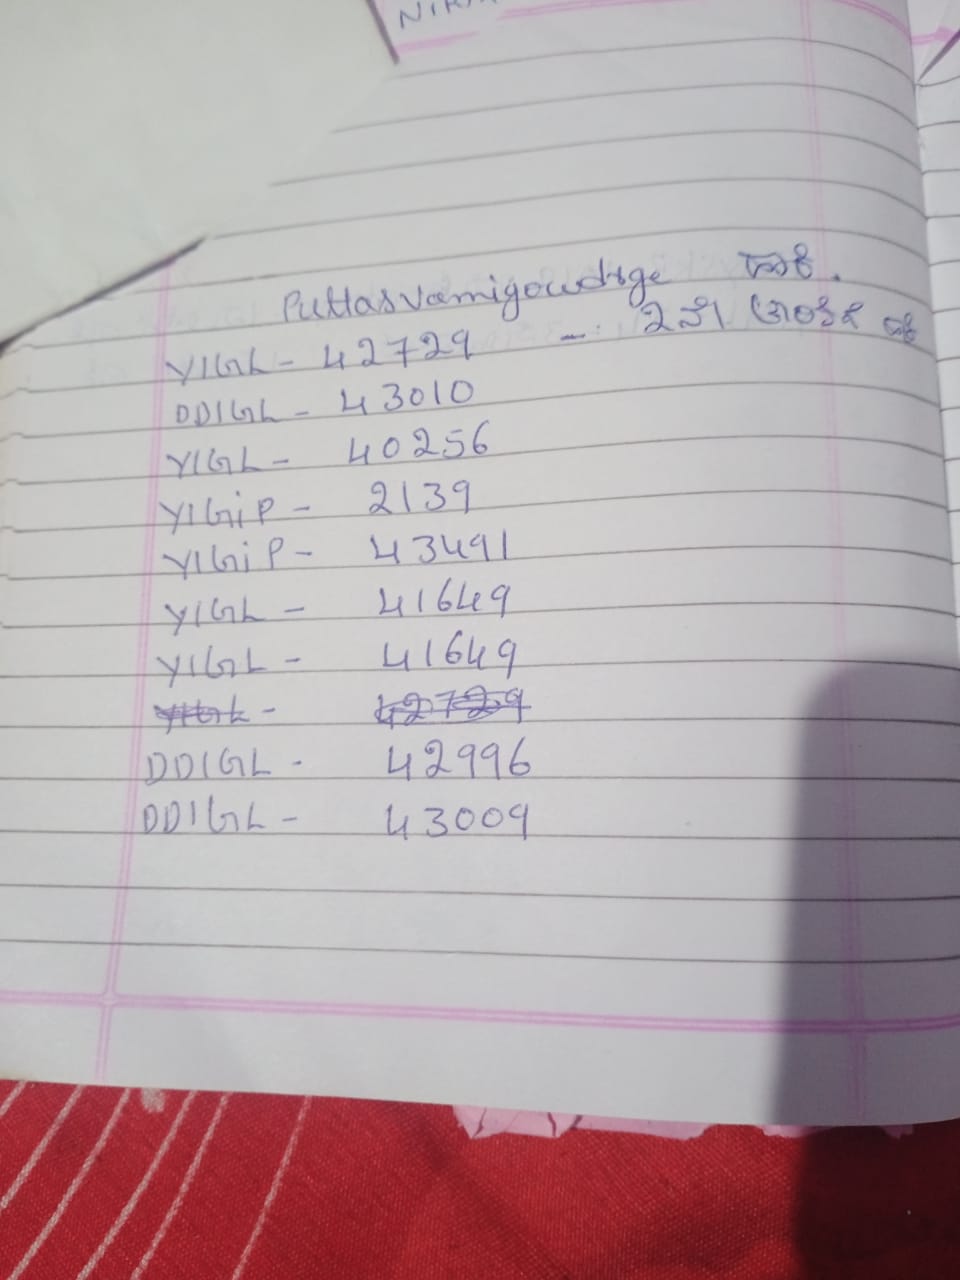 Puttasvamigowdrge
YIGL - 42729 -
DDIGL - 43010
YIGL - 40256
YIGiP - 2139
YIGiP - 43491
YIGL - 41649
YIGL - 41649
YIGL - 42729
DDIGL - 42996
DDIGL - 43009